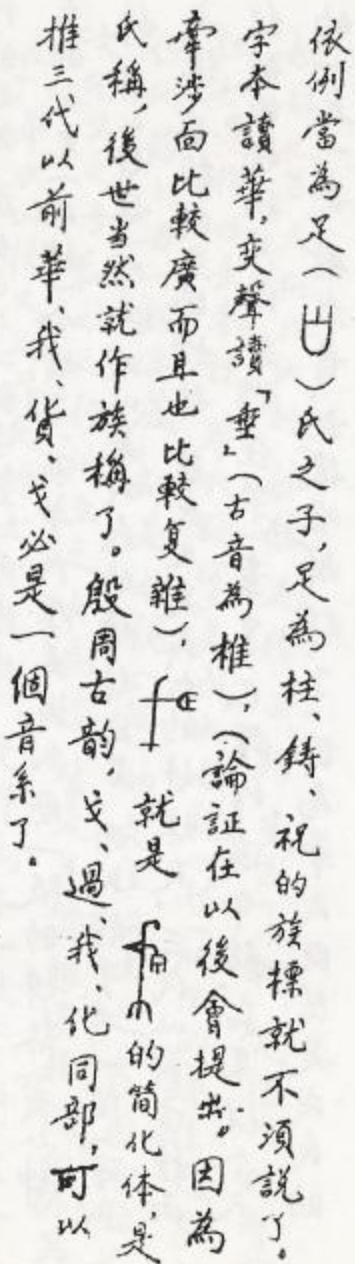 依例當為足（）氏之子，足為柱、鑄、祝的族標就不須說了。
字本讀華，变聲讀「垂」（古音為椎），（論証在以後會提出。因為
牽涉面比較廣而且也比較复雜），就是的简化体，是
氏稱，後世当然就作族稱了。殷周古韵，戈、過、我、化同部，可以
推三代以前華、我、貨、戈必是一個音系了。